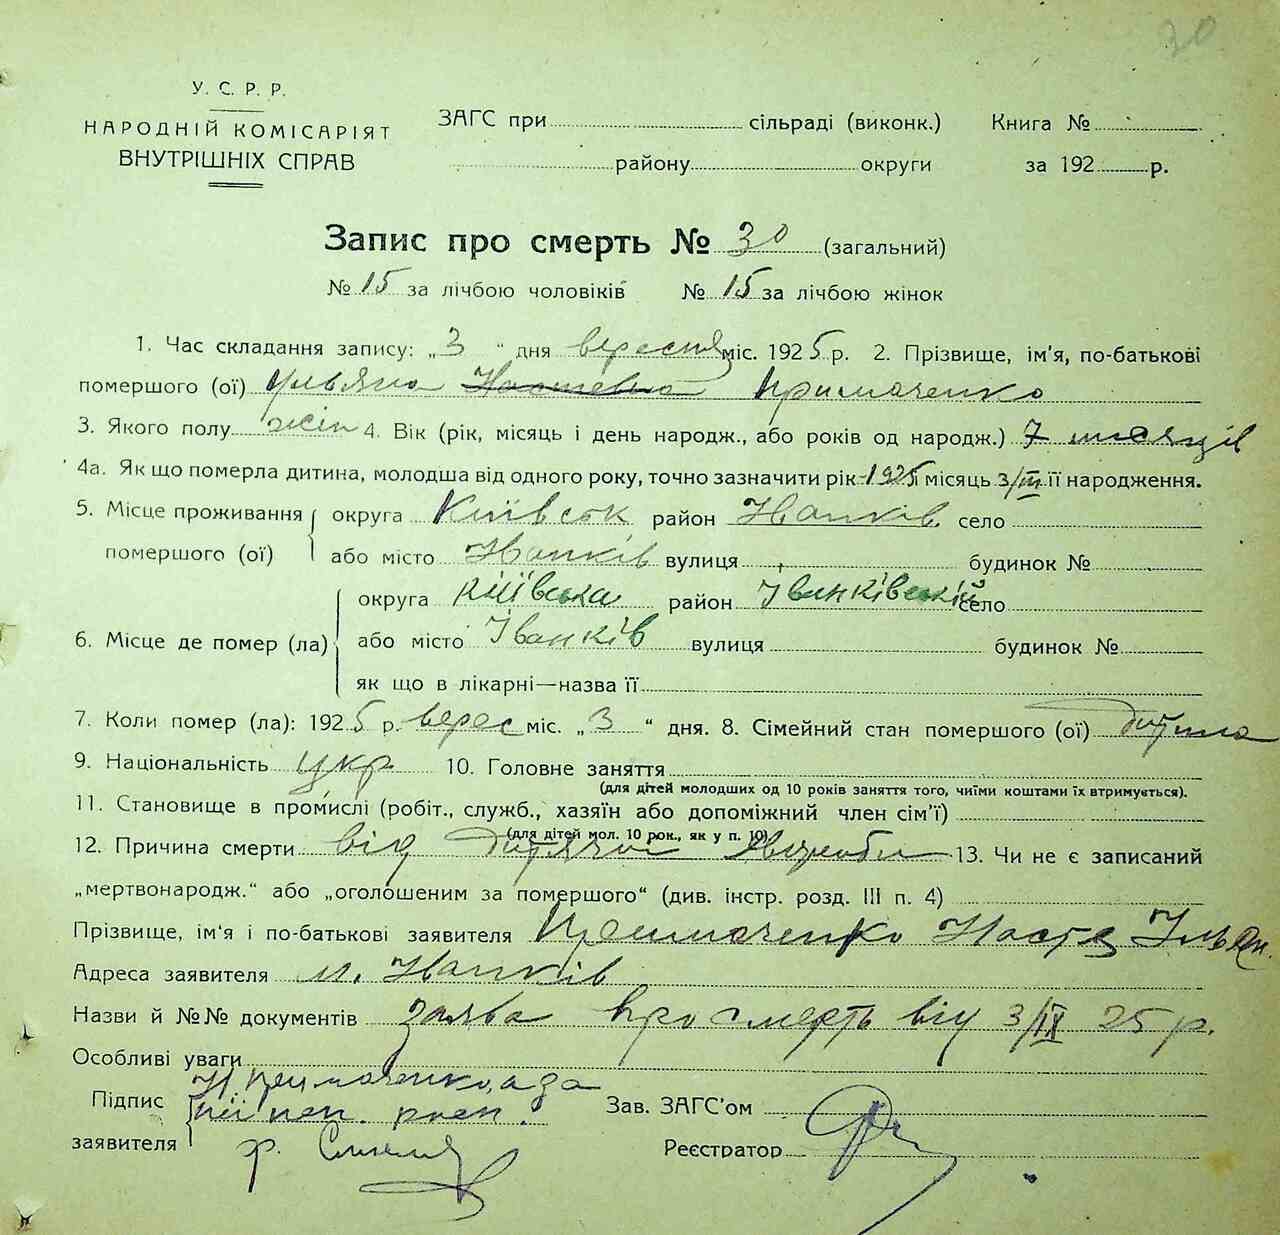 30
У. С. Р. Р.
НАРОДНІЙ КОМІСАРІЯТ
ВНУТРІШНІХ СПРАВ
ЗАГС при сільраді (виконк.) Книга №
району округи за 192 р.
Запис про смерть № 30 (загальний)
№ 15 за лічбою чоловіків № 15 за лічбою жінок
1. Час складання запису: „3“ дня вересня міс. 1925 р. 2. Прізвище, ім'я, по-батькові
помершого (ої) Ульяна Примаченко
3. Якого полу жін 4. Вік (рік, місяць і день народж., або років од народж.) 7 місяців
4а. Як що померла дитина, молодша від одного року, точно зазначити рік 1925 місяць 3/III її народження.
5. Місце проживання округа Київськ район Іванків. село
помершого (ої) або місто Іванків вулиця будинок №
округа Київська район Іванківській село
6. Місце де помер (ла) або місто Іванків вулиця будинок №
як що в лікарні—назва її
7. Коли помер (ла): 1925 р. верес міс. „3“ дня. 8. Сімейний стан помершого (ої) дитина
9. Національність укр 10. Головне заняття
(для дітей молодших од 10 років заняття того, чиїми коштами їх втримується).
11. Становище в промислі (робіт., служб., хазяїн або допоміжний член сім'ї)
(для дітей мол. 10 рок., як у п. 10)
12. Причина смерти від дитячої хвороби 13. Чи не є записаний
„мертвонародж.“ або „оголошеним за помершого“ (див. інстр. розд. III п. 4)
Прізвище, ім'я і по-батькові заявителя Примаченко Настя Ульян.
Адреса заявителя м. Іванків
Назви й №№ документів заява про смерть від 3/IX 25 р.
Особливі уваги
Н Примаченко, а за
Підпис неї неп. росп. Зав. ЗАГС'ом
заявителя Реєстратор